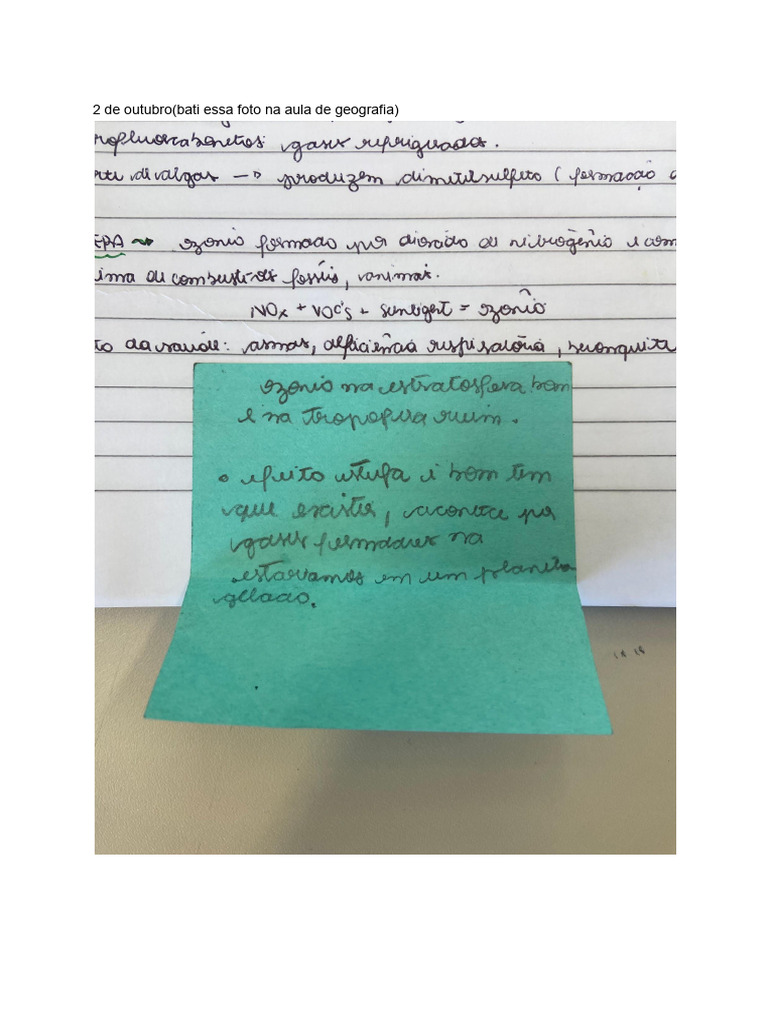 2 de outubro(bati essa foto na aula de geografia)
rofluorcabonetos gases refrigerados.
produzem dimetilsulfeto ( formação
EPA ozonio formado por dioxido de nitrogênio e com
ima de combustiveis fosseis, animais.
NOx + VOC's + sunligert = ozonîo
to da saude: asmas, deficiência respiratória, bronquite
ozonio na estratosfera bom
e na troposfera ruim.
efeito estufa é bom tem
que existir, acontece por
gases formadores na
estariamos em um planeta
gelado.